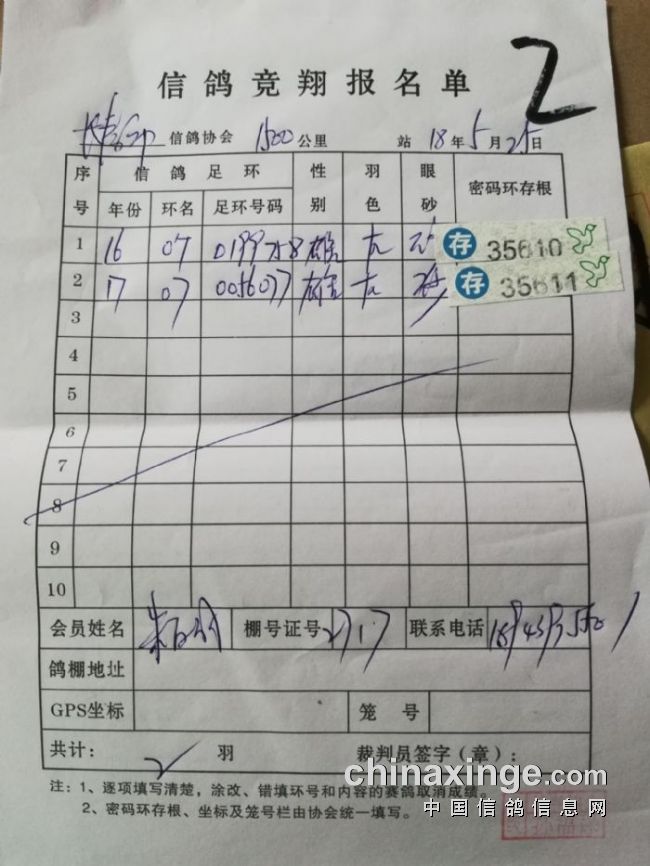 2
信鸽竞翔报名单
信鸽协会 1500 公里 站 18 年 5 月 25 日
序号 信鸽足环 性别 羽色 眼砂 密码环存根
年份 环名 足环号码
1 16 07 0199758 雄 存 35610
2 17 07 0056077 雄 存 35611
3
4
5
6
7
8
9
10
会员姓名 棚号证号 联系电话
鸽棚地址
GPS坐标 笼号
共计： 2 羽 裁判员签字（章）：
注：1、逐项填写清楚，涂改、错填环号和内容的赛鸽取消成绩。
2、密码环存根、坐标及笼号栏由协会统一填写。
chinaxinge.com
中国信鸽信息网